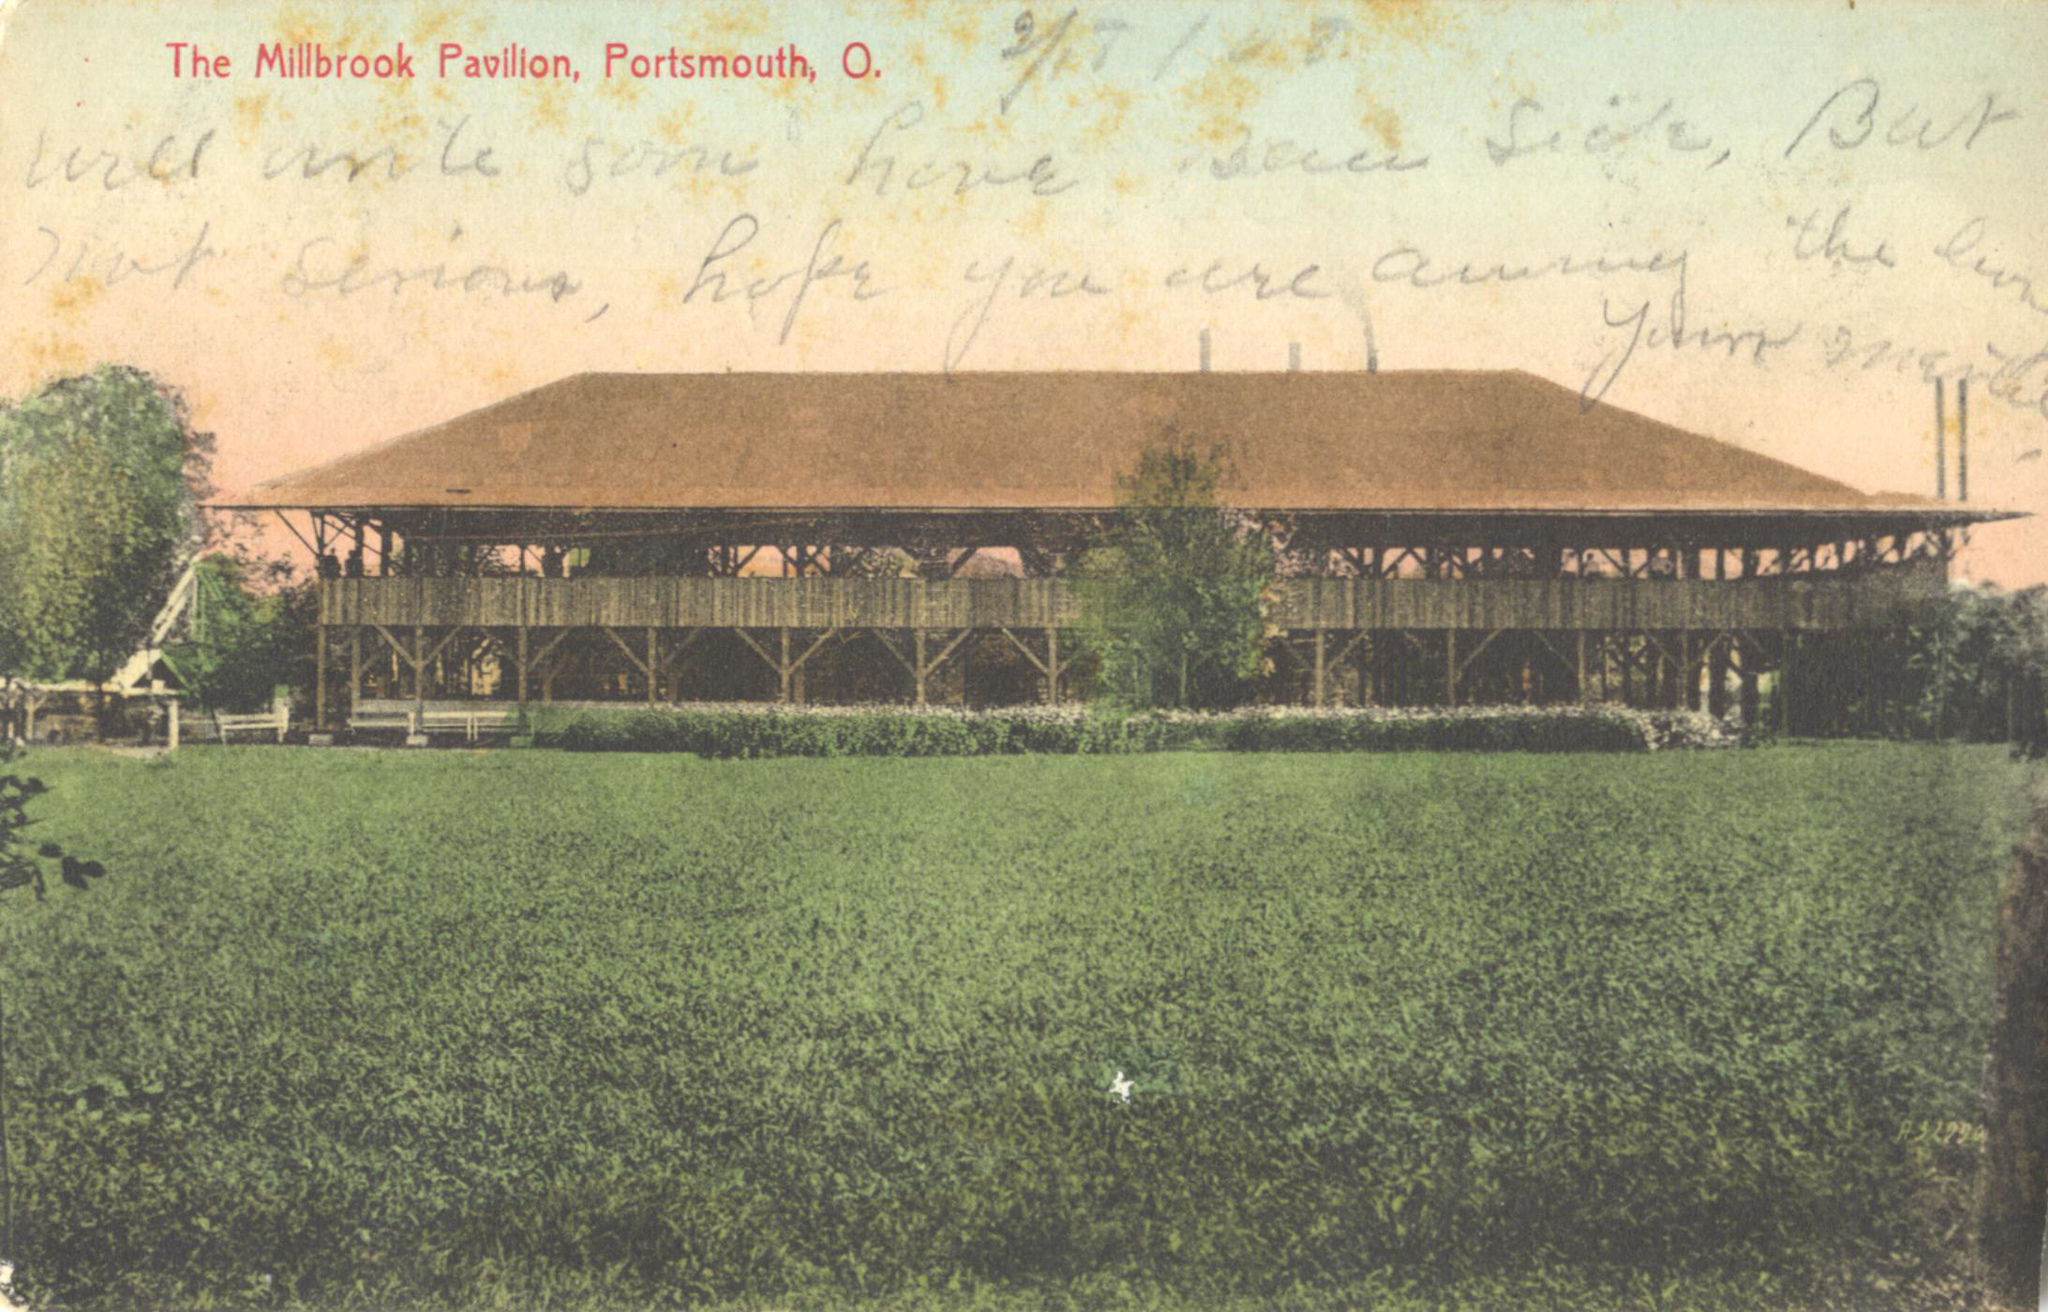 The Millbrook Pavilion, Portsmouth, O.
2/18/08
will write soon have been Sick, But
not serious, hope you are among the living
Yours